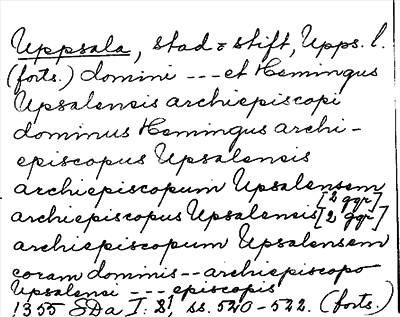 Uppsala, stad o stift, Upps. l.
(forts.) domini --- et Hemingus
Upsalensis archiepiscopi
dominus Hemingus archi-
episcopus Upsalensis
archiepiscopum Upsalensem
[2 ggr]
archiepiscopus Upsalensis [2 ggr]
archiepiscopum Upsalensem
coram dominis -- archiepiscopo
Upsalensi --- episcopis
1355 SDa I: s. 520-522. (forts.)